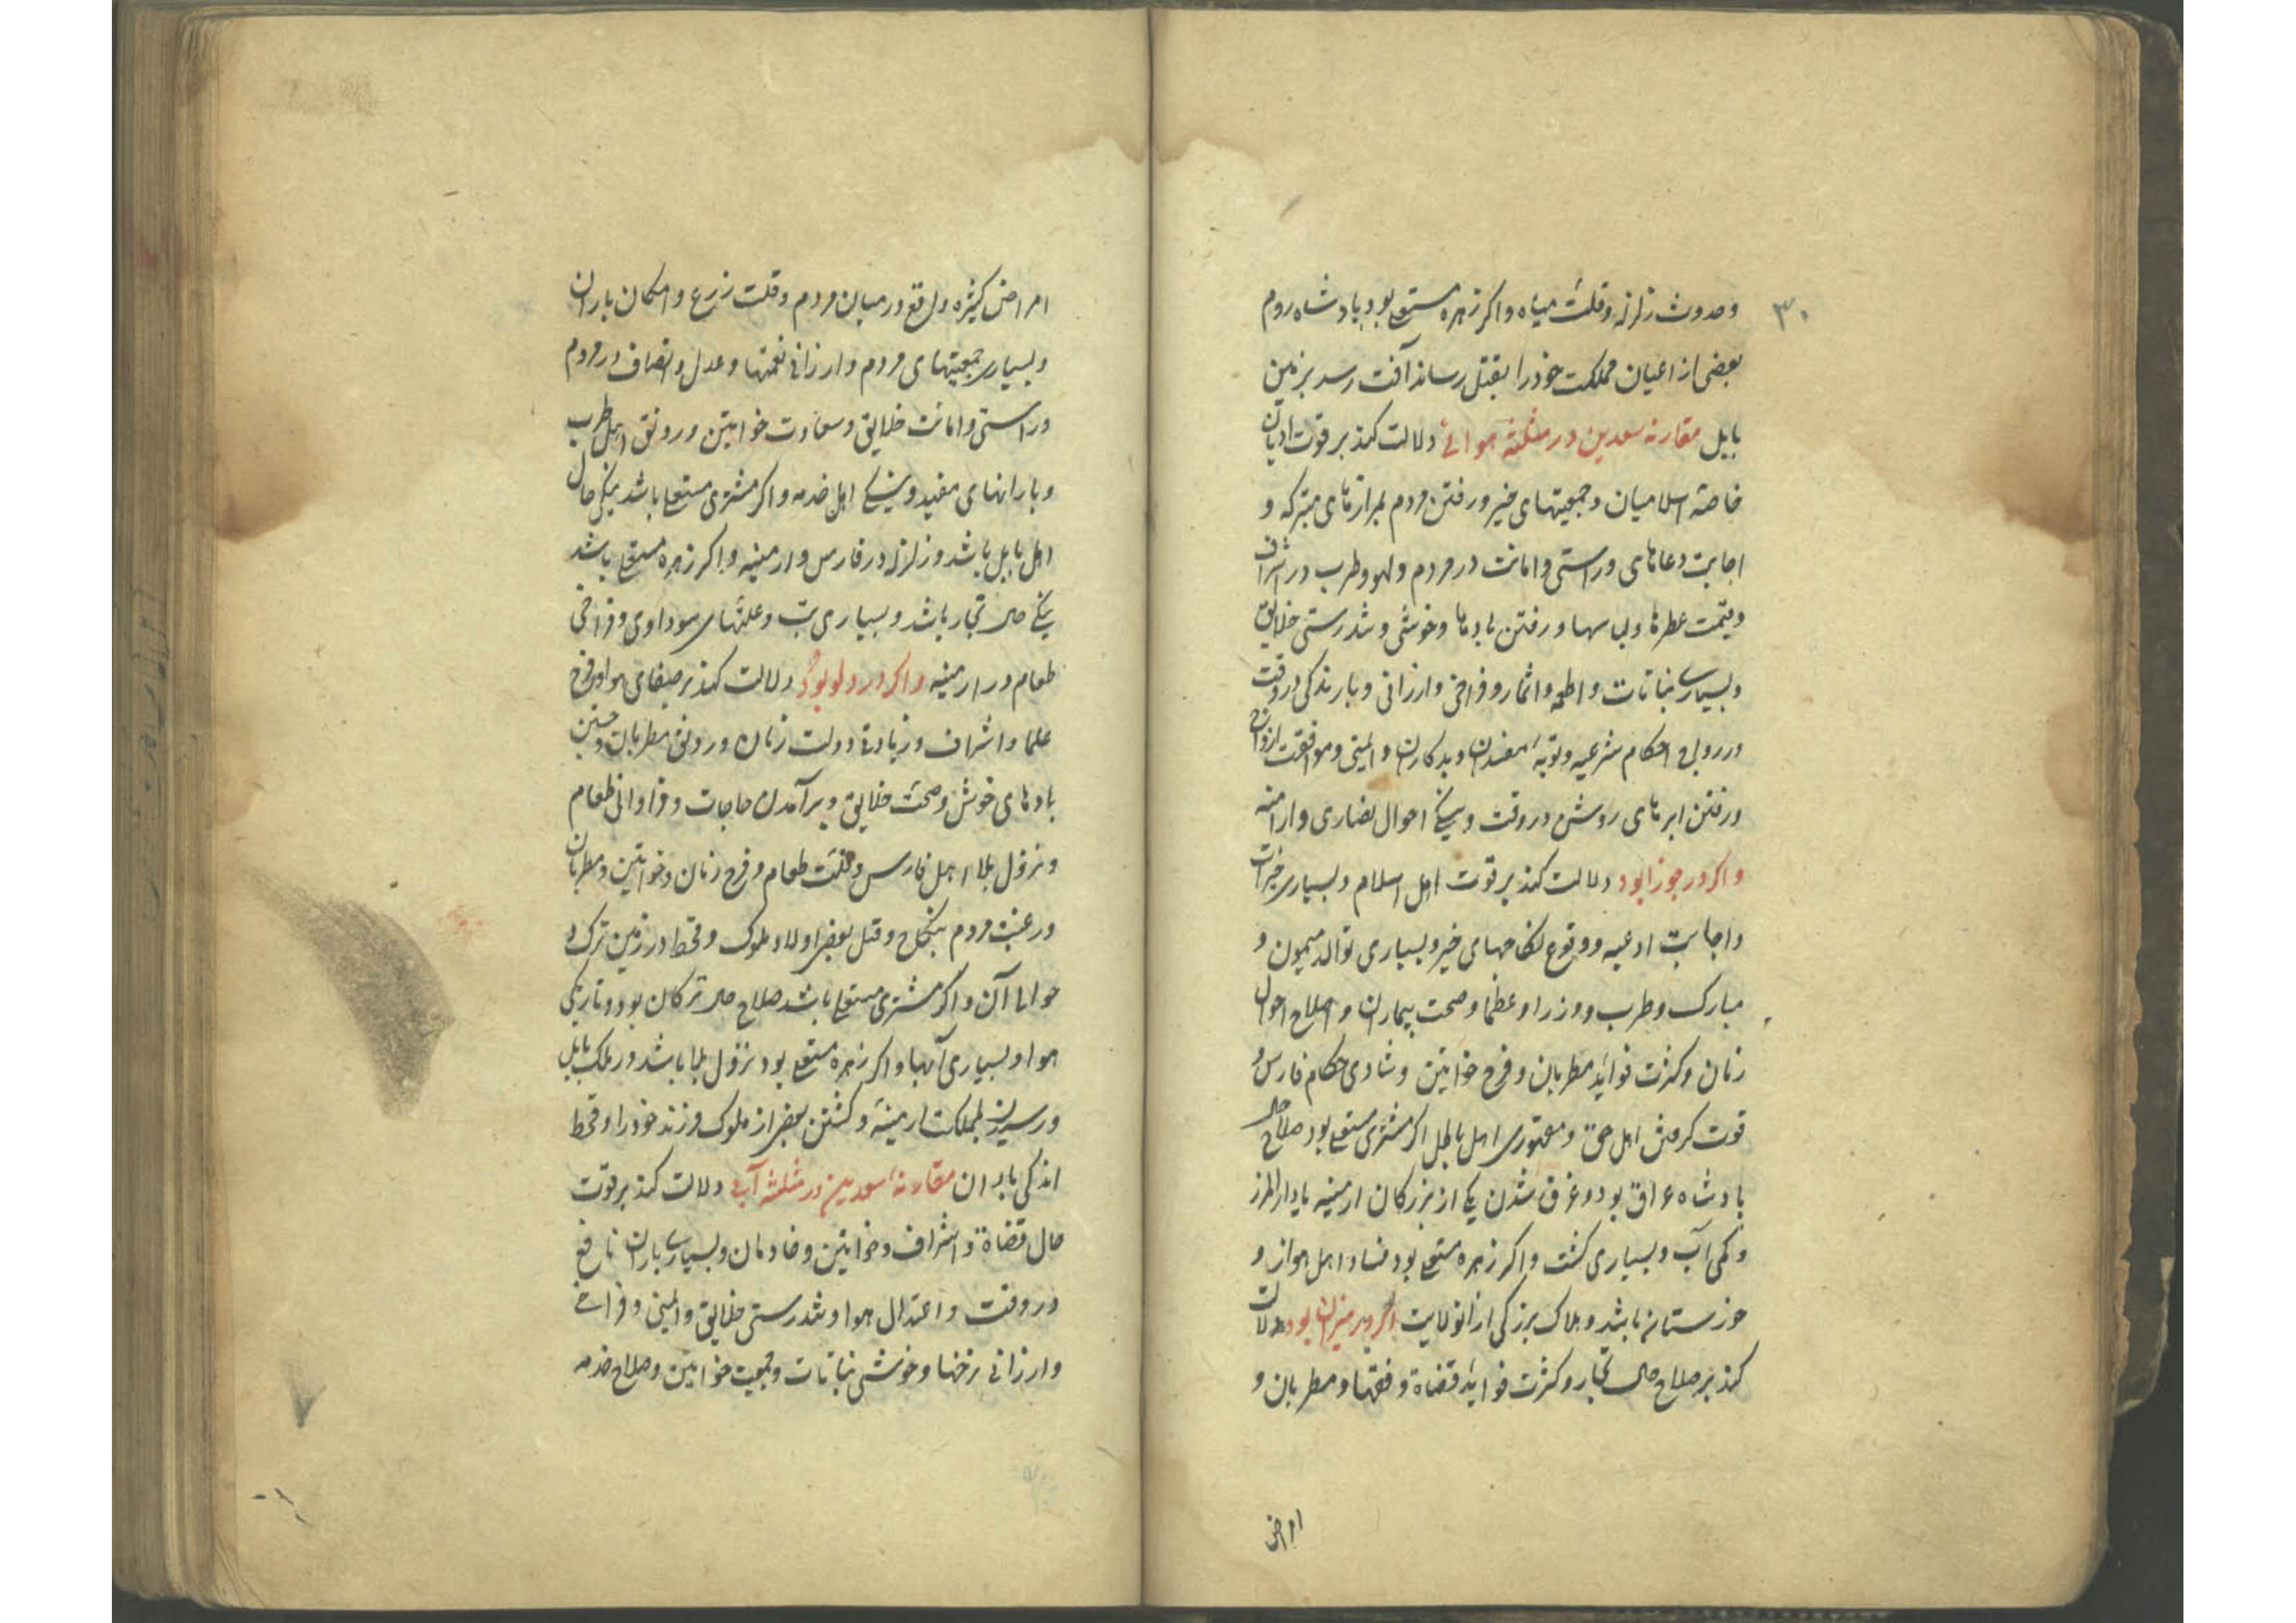 ۳۰
وحدوث زلزله وقلت میاه واکر زهره مستعلی بود پادشاه روم
بعضی از اعیان مملکت خود را بقتل رساند آفت رسد بزمین
بابل مقارنه سعدین در مثلثه هوائی دلالت کند بر قوت ادیان
خاصه اسلامیان وجمعیتهای خیر ورفتن مردم بمزارهای متبرکه و
اجابت دعاهای وراستی وامانت در مردم ولهو وطرب در اشراف
وقیمت عطرها ولباسها ورفتن بادها وخوشی وتندرستی خلایق
وبسیاری نباتات واطعمه واثمار وفراخی وارزانی وبارندکی در وقت
ورواج احکام شرعیه وتوبه مفسدان وبدکاران وایمنی وموافقت ازواج
ورفتن ابرهای روشن در وقت ونیکی احوال نصاری وارامنه
واکر در جوزا بود دلالت کند بر قوت اهل اسلام وبسیاری خیرات
واجابت ادعیه ووقوع نکاحهای خیر وبسیاری توالد میمون و
مبارک وطرب ووزرا وعظما وصحت بیماران واصلاح احوال
زنان وکثرت فواید مطربان وفرح خواتین وشادی حکام فارس و
قوت کرفتن اهل حق ومقهوری اهل باطل اکر مشتری مستعلی بود صلاح حال
پادشاه عراق بود وغرق شدن یکی از بزرکان ارمنیه یا دار المرز
وکمی آب وبسیاری کشت واکر زهره مستعلی بود فساد اهل اهواز و
خوزستان باشد وهلاک بزرکی از انولایت اکر در میزان بود دلالت
کند بر صلاح حال تجار وکثرت فواید قضاة وفقها ومطربان و
امراض
امراض کثیره واقع در میان مردم وقلت زرع وامکان باران
وبسیاری جمعیتهای مردم وارزانی نعمتها وعدل وانصاف در مردم
وراستی وامانت خلایق وسعادت خواتین ورونق اهل طرب
وبارانهای مفید ونیکی اهل خدمه واکر مشتری مستعلی باشد نیکی حال
اهل بابل باشد وزلزله در فارس وارمنیه واکر زهره مستعلی باشد
نیکی حال تجار باشد وبسیاری تب وعلتهای سوداوی وفراخی
طعام در ارمنیه واکر در دلو بود دلالت کند بر صفای هوا وفرح
علما واشراف وزیادتی دولت زنان ورونق مطربان وجستن
بادهای خوش وصحت خلایق وبرآمدن حاجات وفراوانی طعام
ونزول بلا اهل فارس وقلت طعام وفرح زنان وخواتین ومطربان
ورغبت مردم بنکاح وقتل بعضی اولاد ملوک وقحط در زمین ترک و
حوالی آن واکر مشتری مستعلی باشد صلاح حال ترکان بود وتاریکی
هوا وبسیاری آبها واکر زهره مستعلی بود نزول بلا باشد در ملک بابل
ورسیدن بمملکت ارمنیه وکشتن بعضی از ملوک فرزند خود را وقحط
اندکی باران مقارنه سعدین در مثلثه آبی دلالت کند بر قوت
حال قضاة واشراف وخواتین وخادمان وبسیاری باران نافع
در وقت واعتدال هوا وتندرستی خلایق وایمنی وفراخی
وارزانی نرخها وخوشی نباتات وجمعیت خواتین وصلاح خدمه